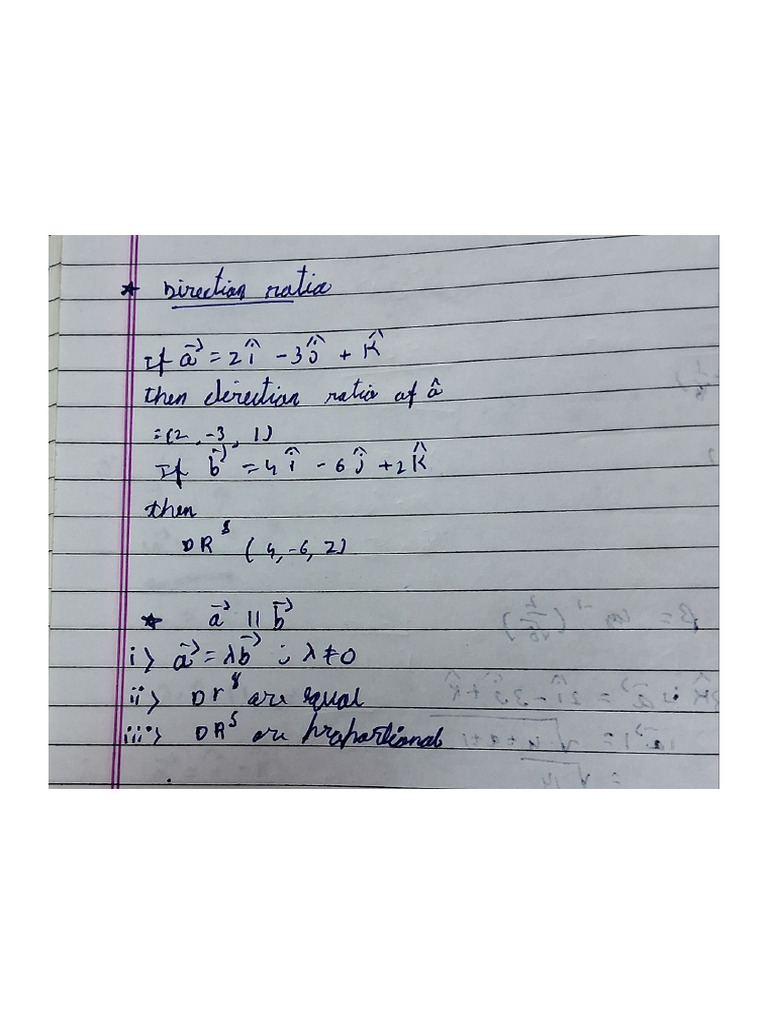 * Direction ratio
If a⃗ = 2î - 3ĵ + k̂
then direction ratio of â
= (2, -3, 1)
If b⃗ = 4î - 6ĵ + 2k̂
then
DRˢ (4, -6, 2)
* a⃗ || b⃗
i> a⃗ = λb⃗ ; λ ≠ 0
ii> Drˢ are equal
iii> DRˢ are proportional